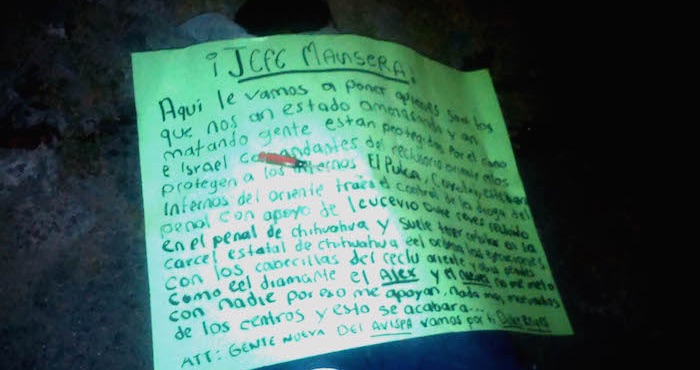 ¡JCFC MAUSERA!
Aquí le vamos a poner quienes son los
que nos an estado amenasando y an
matando gente estan protegidos por el
e Israel comandantes del reclusorio oriente ellos
protegen a los internos El Pulga,
Internos del oriente traen el control de la droga del
penal con apoyo de Leucevio
en el penal de chihuahua y suele tener celular en la
carcel estatal de chihuahua el ordena
con los cabecillas del reclu oriente y
como el diamante el Alex y el no me meto
con nadie por eso me apoyan, nada mas
de los centros y esto se acabara...
ATT: GENTE NUEVA DEL AVISPA vamos por ti